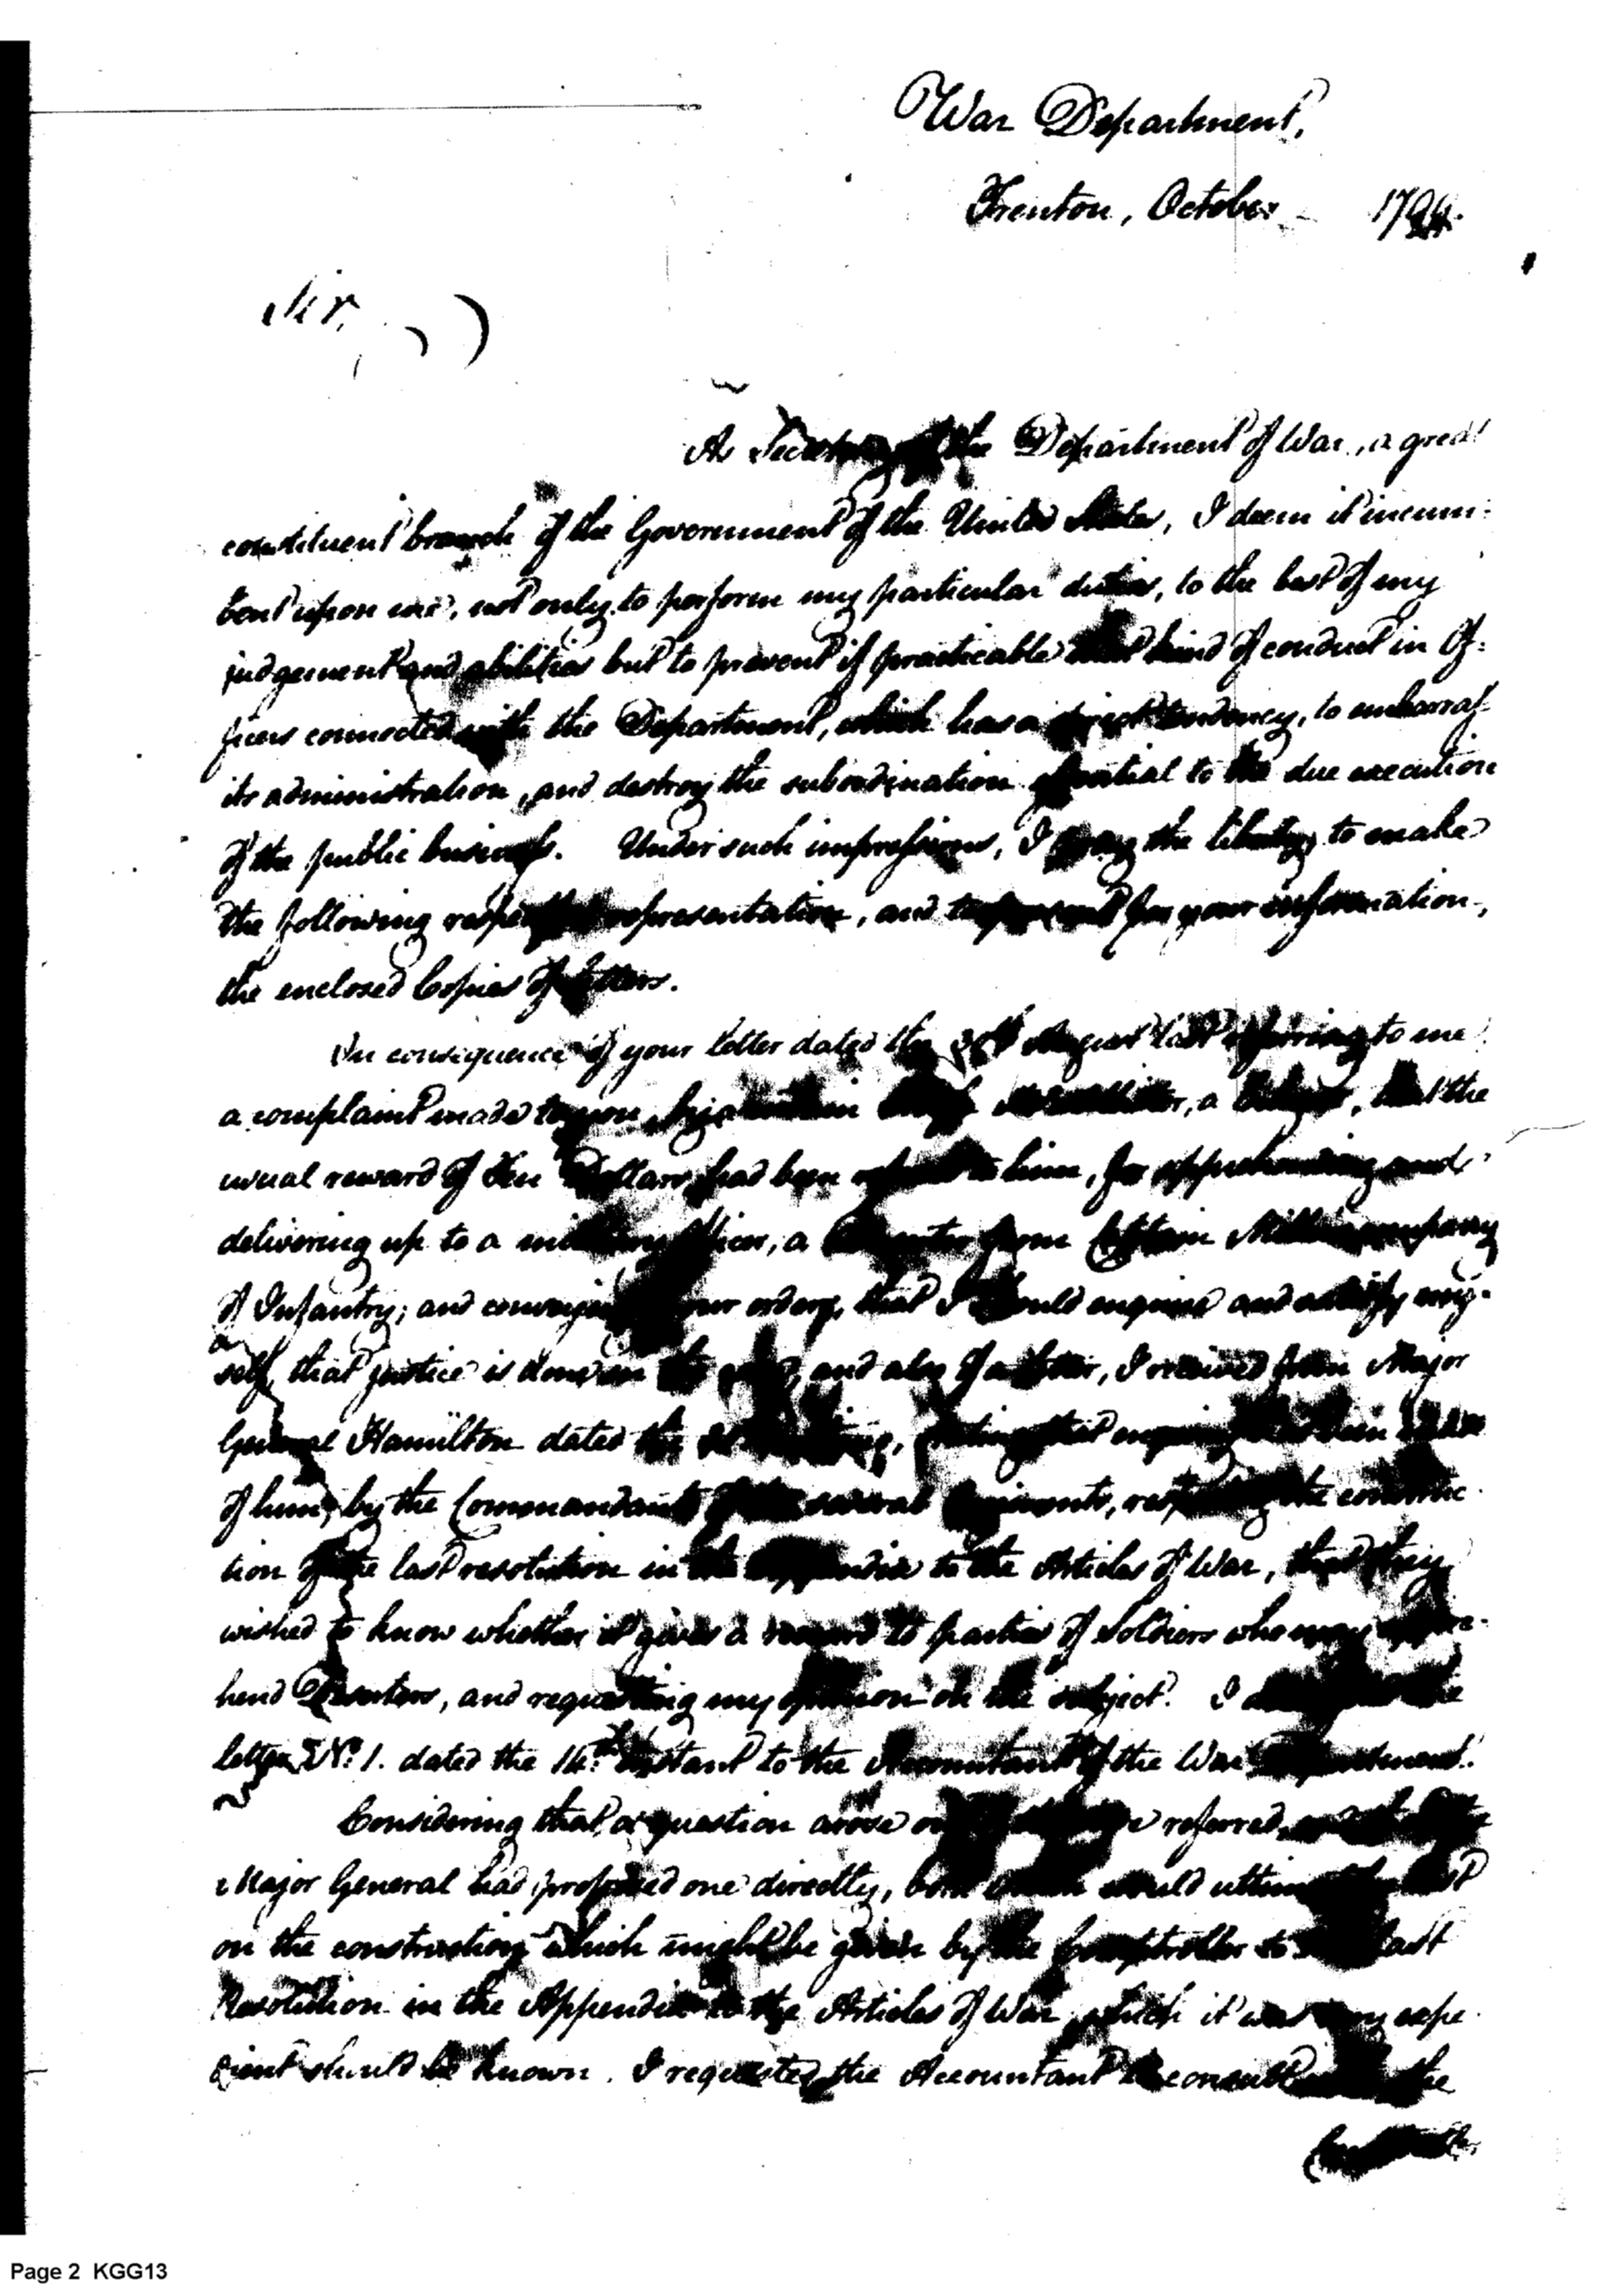 War Department,
Trenton, October 179
Sir,
As Secretary of the Department of War, a great
constituent branch of the Government of the United States, I deem it incum=
bent upon me, not only to perform my particular duties, to the best of my
judgement and abilities but to prevent if practicable that kind of conduct in Of=
ficers connected with the Department, which has a direct tendency, to embarrass
its administration, and destroy the subordination essential to the due execution
of the public business. Under such impressions, I the liberty to make
the following respectful representation, and to present for your information,
the enclosed Copies of letters.
In consequence of your letter dated the August last referring to me
a complaint made to you, by a certain a that the
usual reward of Ten Dollars, had been refused to him, for apprehending and
delivering up to a military officer, a Deserter from Captain company
of Infantry; and conveying your orders, that I should enquire and satisfy my=
self, that justice is done in the and also of a letter, I received from Major
General Hamilton dated the stating that enquiry had been made
of him, by the Commandants of the several Regiments, respecting the construc=
tion of the last resolution in the Appendix to the Articles of War, that they
wished to know whether it gives a reward to parties of Soldiers who may appre=
hend Deserters, and requesting my opinion on the subject. I the
letter No. 1. dated the 14th instant to the Accountant of the War Department.
Considering that a question arose on referred,
Major General had proposed one directly, both which would
on the construction which might be given by the Comptroller to the last
Resolution in the Appendix to the Articles of War, which it was very expe=
dient should be known. I requested the Accountant to consult with the